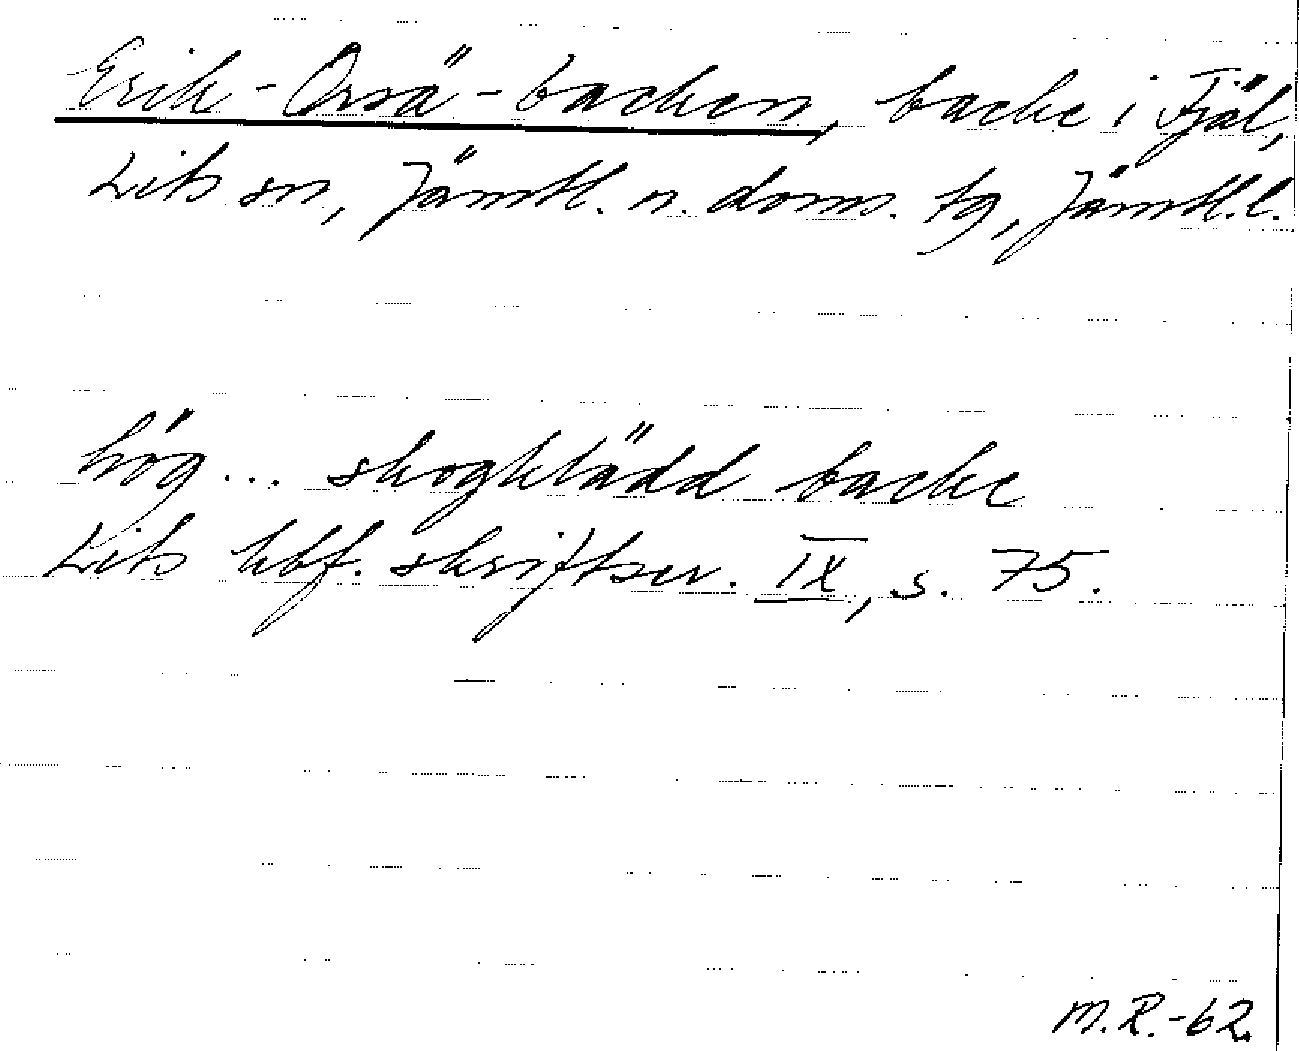 Erik-Orsä-backen, backe i Fjäl,
Lits sn, Jämtl. n. doms. tg, Jämtl. l.
hög... skogklädd backe
Lits hbf. skriftser. IX, s. 75.
M.R.-62